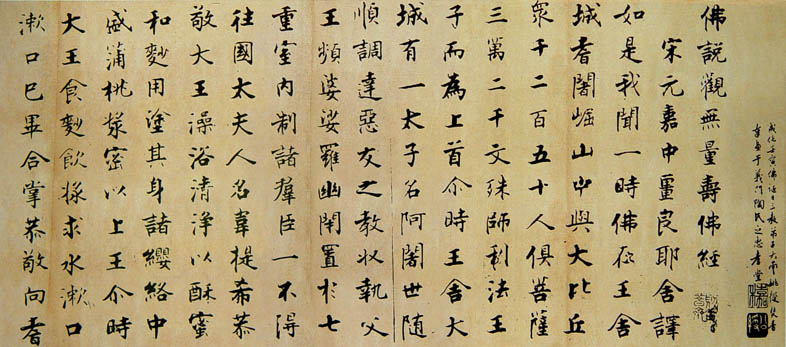 成化壬寅佛誕日三教弟子大姚綬焚香
奉書于義門陶氏之忠孝堂
佛說觀無量壽佛經
宋元嘉中畺良耶舍譯
如是我聞一時佛在王舍
城耆闍崛山中與大比丘
眾千二百五十人俱菩薩
三萬二千文殊師利法王
子而為上首尒時王舍大
城有一太子名阿闍世隨
順調達惡友之教收執父
王頻婆娑羅幽閉置於七
重室內制諸羣臣一不得
往國太夫人名韋提希恭
敬大王澡浴清淨以酥蜜
和麨用塗其身諸纓絡中
盛蒲桃漿密以上王尒時
大王食麨飲漿求水漱口
漱口已畢合掌恭敬向耆